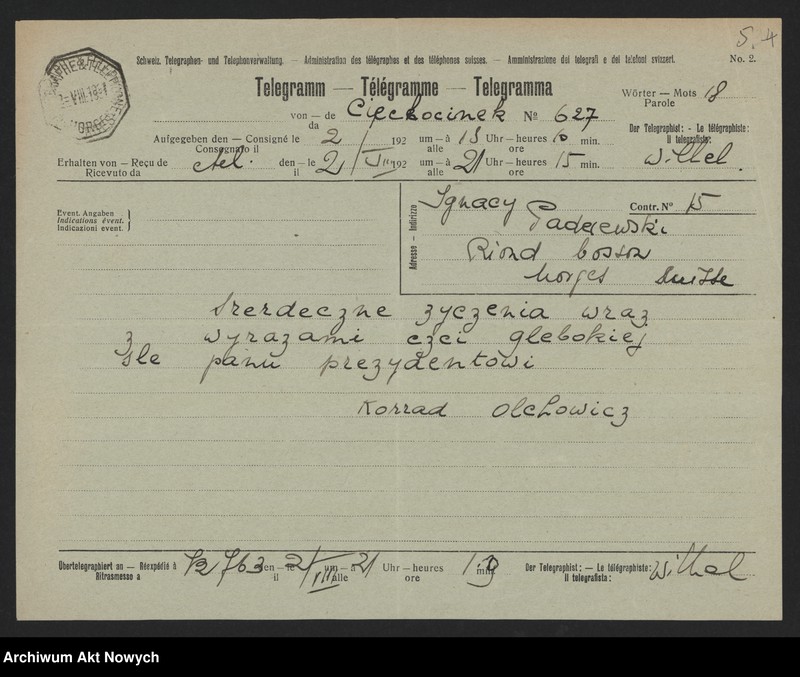 S. 4
Schweiz. Telegraphen- und Telephonverwaltung. — Administration des télégraphes et des téléphones suisses. — Amministrazione dei telegrafi e dei telefoni svizzeri.
No. 2.
Telegramm — Télégramme — Telegramma
Wörter — Mots 18
Parole
von — de Ciechocinek № 627
da
Aufgegeben den — Consigné le 2 / 192 um — à 15 Uhr — heures 10 min.
Consegnato il alle ore
Der Telegraphist: - Le télégraphiste:
Il telegrafista:
Erhalten von — Reçu de den — le 2 / VIII 192 um — à 21 Uhr — heures 15 min.
Ricevuto da il alle ore
Event. Angaben
Indications évent.
Indicazioni event.
Adresse — Indirizzo
Ignacy Contr. № 15
Paderewski
Riond bosson
Morges Suisse
Srerdeczne zyczenia wraz
z wyrazami czci glebokiej
sle panu prezydentowi
Korrad Olchowicz
Übertelegraphiert an — Réexpédié à 763 den — le 2/VIII um — à 21 Uhr — heures min.
Ritrasmesso a il alle ore
Der Telegraphist: — Le télégraphiste:
Il telegrafista:
Archiwum Akt Nowych